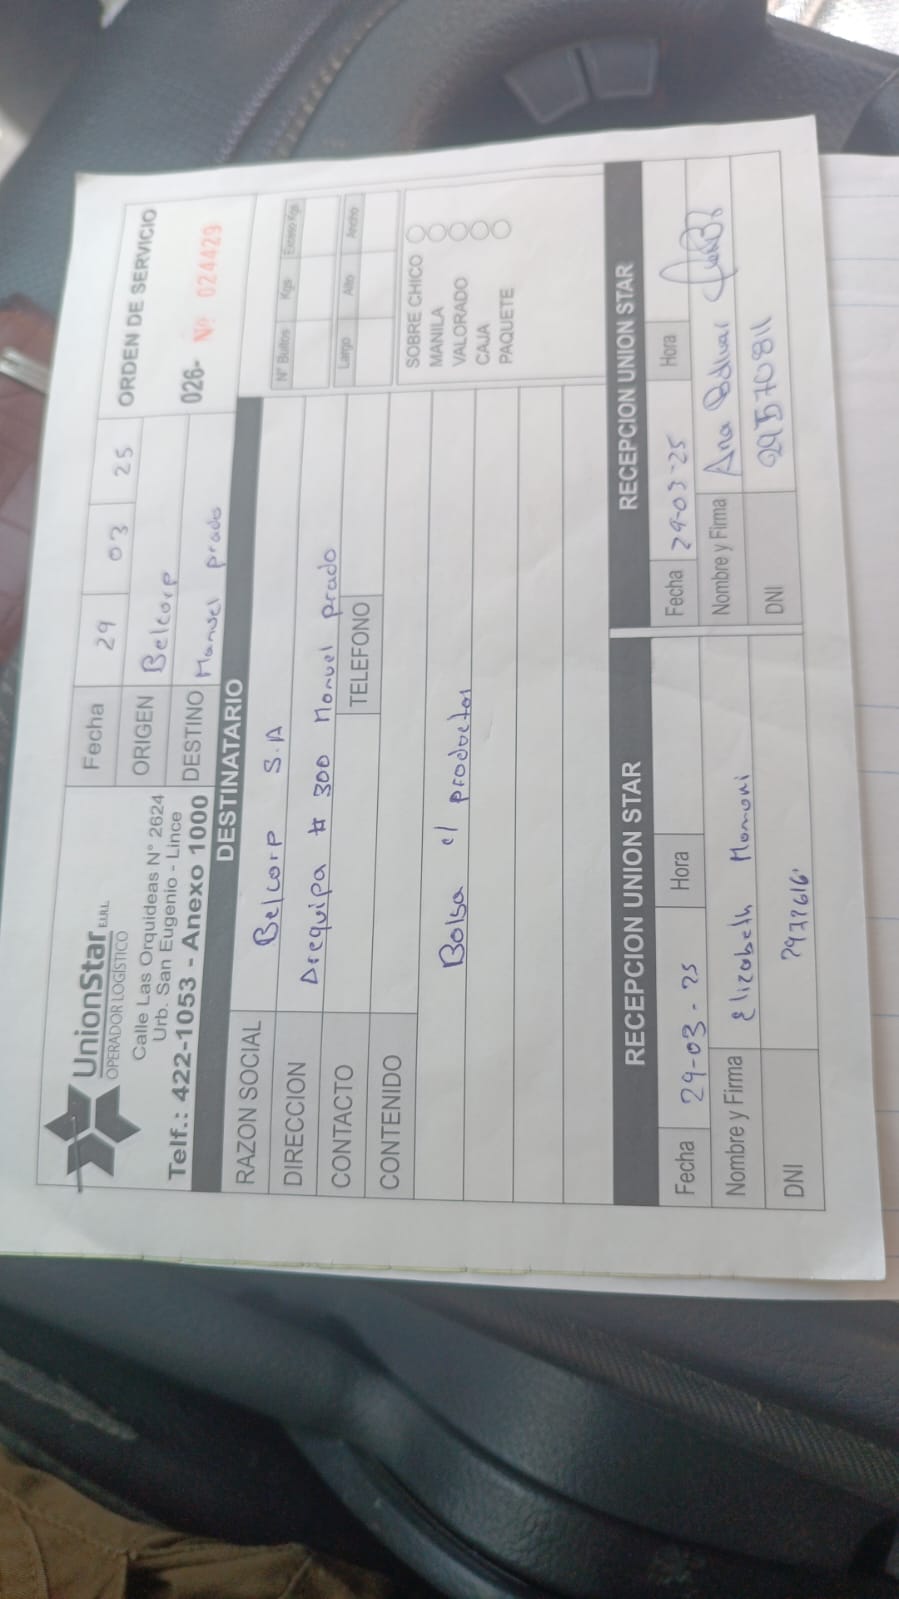 UnionStar E.I.R.L.
OPERADOR LOGÍSTICO
Calle Las Orquideas N° 2624
Urb. San Eugenio - Lince
Telf.: 422-1053 - Anexo 1000
Fecha 29 03 25
ORIGEN Belcorp
DESTINO Manuel prado
ORDEN DE SERVICIO
026- Nº 024429
DESTINATARIO
RAZON SOCIAL Belcorp S.A
DIRECCION Arequipa # 300 Manuel prado
CONTACTO TELEFONO
CONTENIDO
Nº Bultos Kgs Exceso Kgs
Largo Alto Ancho
Bolsa c/ productos
SOBRE CHICO
MANILA
VALORADO
CAJA
PAQUETE
RECEPCION UNION STAR
Fecha 29-03-25 Hora
Nombre y Firma Elizabeth Mamani
DNI
RECEPCION UNION STAR
Fecha 29-03-25 Hora
Nombre y Firma Ana Bolivar
DNI 29570811